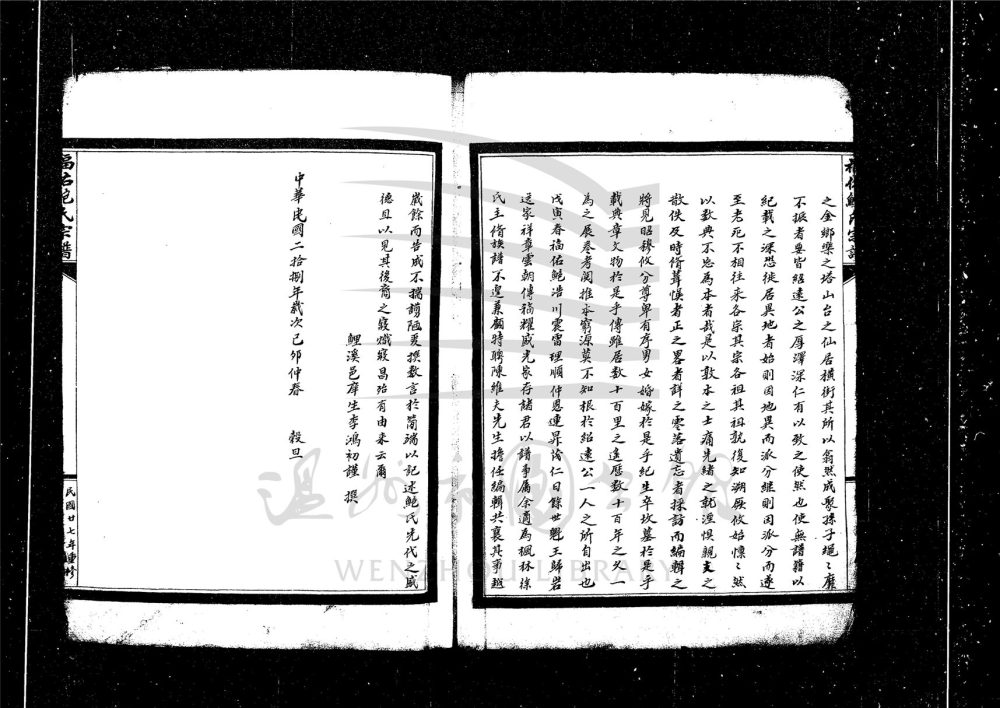 之金鄉樂之塔山台之仙居橫街其所以翕然成聚孫子蝿〻靡
不振者要皆紹遠公之厚澤深仁有以致之使然也使無譜籍以
紀載之深恐徙居異地者始則因地異而派分繼則因派分而遂
至老死不相往来各宗其宗各祖其祖孰復知溯厥攸始懍〻然
以数典不忘為本者哉是以敦本之士痛先緒之就湮惧親支之
散佚及時脩葺悞者正之畧者詳之零落遺忘者採訪而編輯之
將見昭穆攸分尊卑有序男女婚嫁於是乎紀生卒坟墓於是乎
載典章文物於是乎傳雖居数十百里之遙歷数千百年之久一
為之展卷考閱推本窮源莫不知根於紹遠公一人之所自出也
戊寅春福佑鮑浩川震雷理順仲恩連昇岩仁日餘世魁王歸岩
送家祥章雲朝傳稿耀盛光象存諸君以譜事屬余適為楓林徐
氏主脩族譜不遑兼顧特聘陳維夫先生擔任編輯共襄其事越
歲餘而告成不揣譾陋爰撰数言於簡端以記述鮑氏先代之盛
德且以見其後裔之寢熾寢昌殆有由来云爾
鯉溪邑庠生李鴻初謹 撰
中華民國二拾捌年歲次己卯仲春 穀旦
福佑鮑氏宗譜
民國廿七年重修
温州市圖書館
WENZHOU LIBRARY